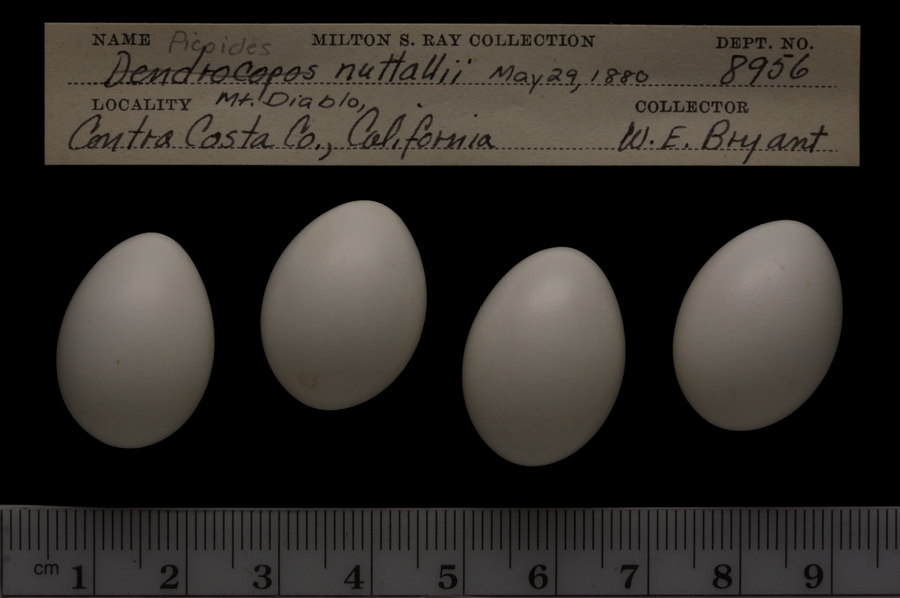 NAME Picoides MILTON S. RAY COLLECTION DEPT. NO.
Dendrocopos nuttallii May 29, 1880 8956
LOCALITY Mt. Diablo, COLLECTOR
Contra Costa Co., California W. E. Bryant
cm 1 2 3 4 5 6 7 8 9